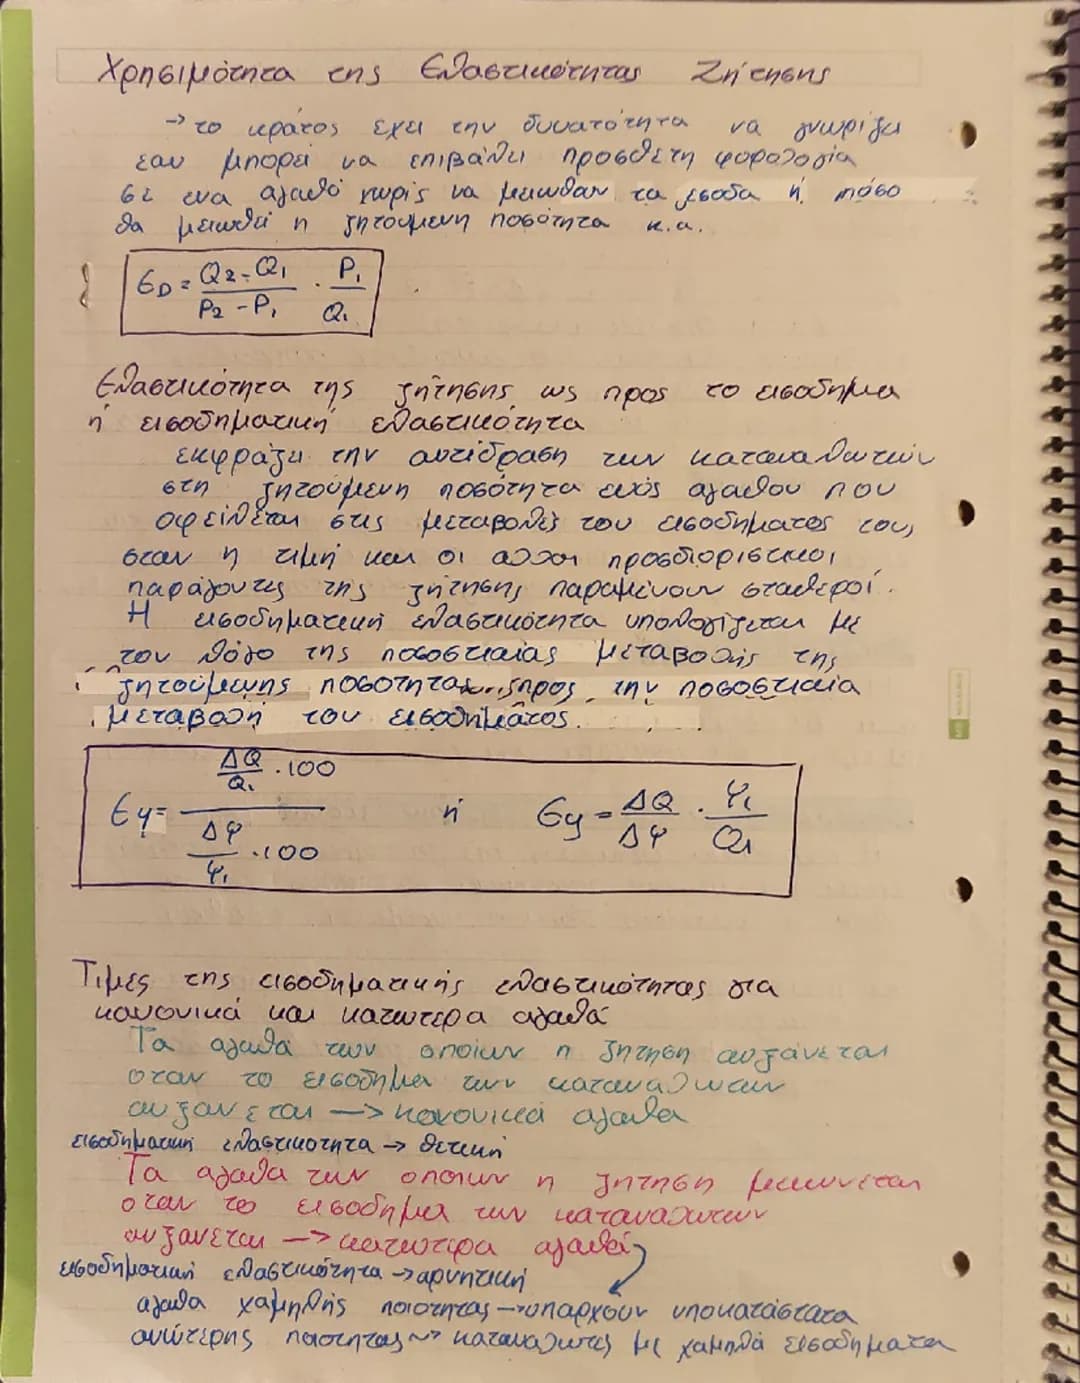 Χρησιμότητα της Ελαστικότητας Ζήτησης
→ το κράτος εχει την δυνατότητα να γνωρίζει
εαν μπορεί να επιβάλλει πρόσθετη φορολογία
σε ενα αγαθό χωρίς να μειωθούν τα έσοδα ή πόσο
θα μειωθεί η ζητούμενη ποσότητα κ.α.
ED = Q2-Q1 / P2-P1 · P1 / Q1
Ελαστικότητα της ζήτησης ως προς το εισόδημα
ή εισοδηματική ελαστικότητα
εκφράζει την αντίδραση των καταναλωτών
στη ζητούμενη ποσότητα ενός αγαθου που
οφείλεται στις μεταβολές του εισοδήματός τους,
όταν η τιμή και οι αλλοι προσδιοριστικοι
παράγοντες της ζήτησης παραμένουν σταθεροί.
Η εισοδηματική ελαστικότητα υπολογίζεται με
τον λόγο της ποσοστιαίας μεταβολής της
ζητούμενης ποσότητας προς την ποσοστιαία
μεταβολή του εισοδήματος.
Ey = ΔQ/Q1 · 100 / Δy/y1 · 100 ή Ey = ΔQ/Δy · y1/Q1
Τιμες της εισοδηματικής ελαστικότητας για
κανονικά και κατωτερα αγαθά
Τα αγαθά των οποίων η ζήτηση αυξάνεται
οταν το εισόδημα των καταναλωτων
αυξανεται → κανονικά αγαθα
εισοδηματικη ελαστικοτητα → θετικη
Τα αγαθα των οποιων η ζητηση μειωνεται
οταν το εισοδημα των καταναλωτων
αυξανεται → κατωτερα αγαθά
εισοδηματικη ελαστικότητα → αρνητική
αγαθα χαμηλής ποιοτητας → υπαρχουν υποκατάστατα
ανώτερης ποιοτητας ~> καταναλωτες με χαμηλά εισοδηματα